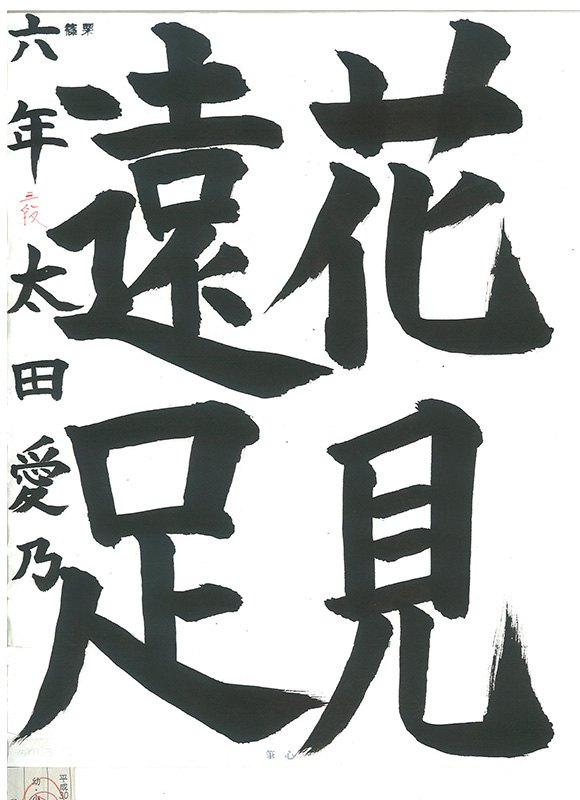 花見
遠足
六年 三段 太田愛乃
篠栗
筆心
平成30
幼・